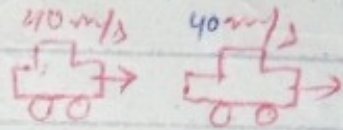 40 m/s 40 m/s